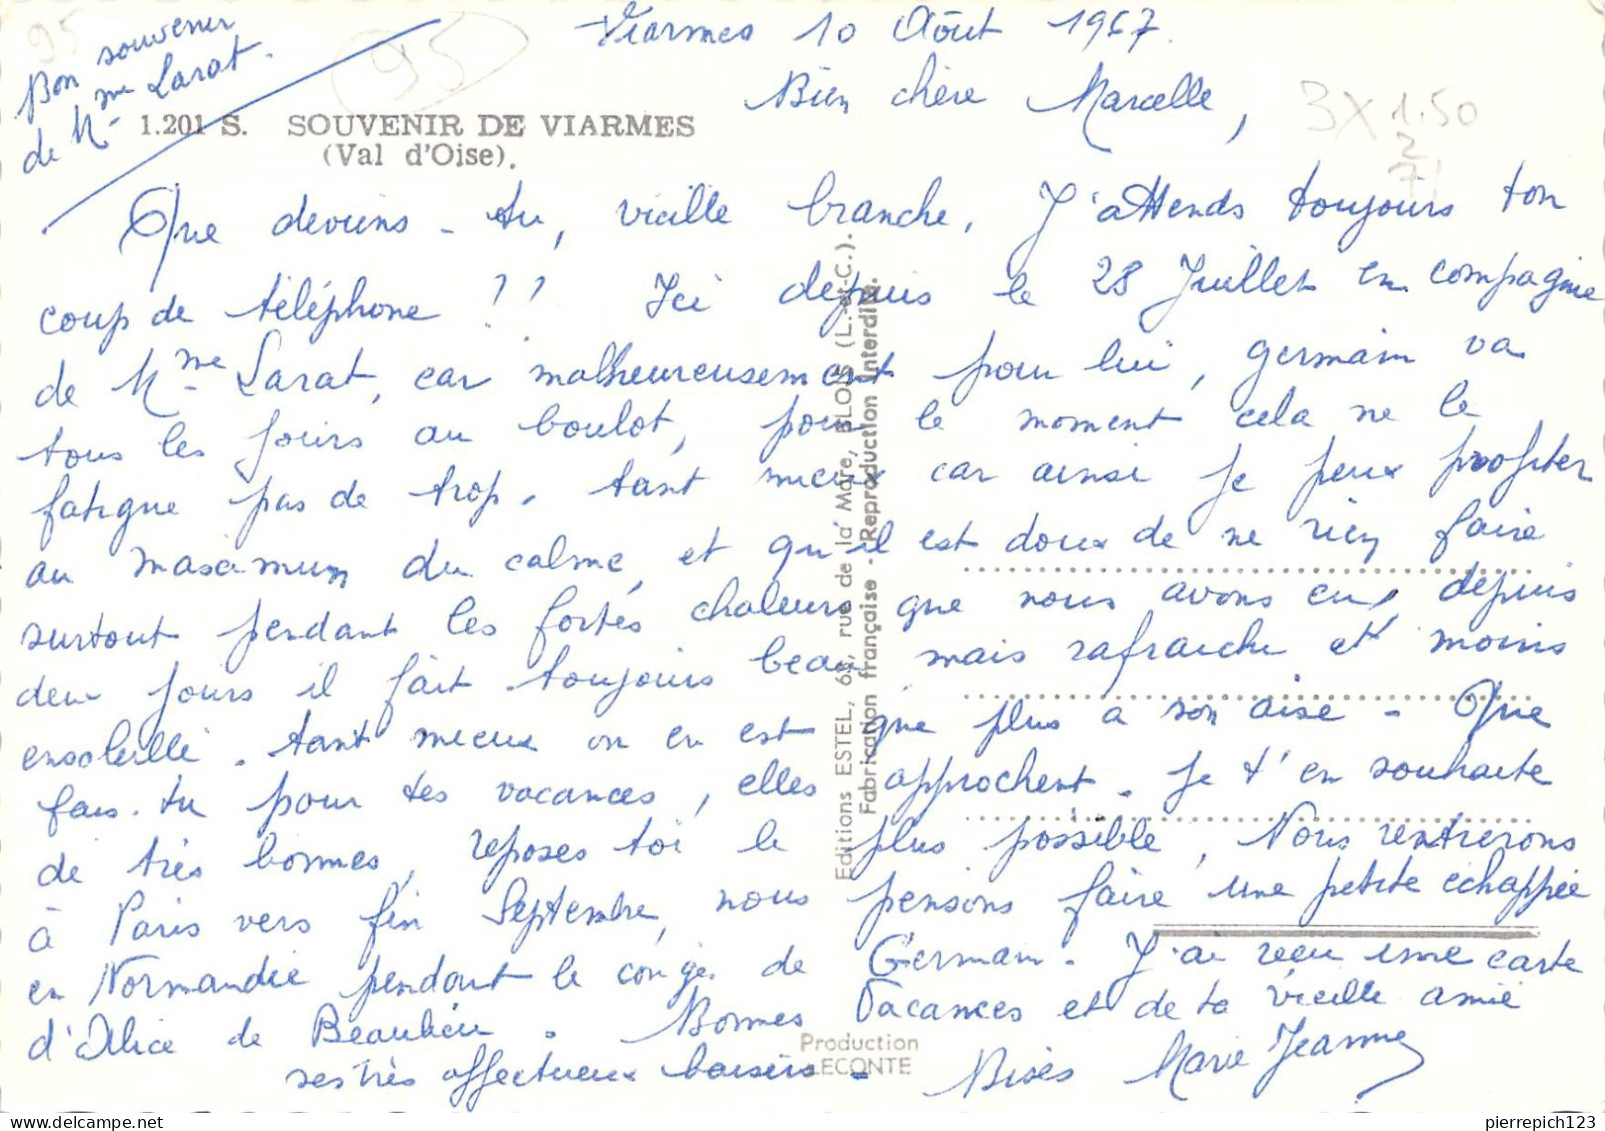 95
95
Bon souvenir
de Mme Larat.
Viarmes 10 Août 1967.
Bien chère Marcelle,
3 X 1.50
2
71
1.201 S. SOUVENIR DE VIARMES
(Val d'Oise).
Que deviens-tu, vieille branche, J'attends toujours ton
coup de téléphone !! Ici depuis le 28 Juillet en compagnie
de Mme Larat, car malheureusement pour lui, germain va
tous les jours au boulot, pour le moment cela ne le
fatigue pas de trop, tant mieux car ainsi je peux profiter
au maximum du calme, et qu'il est doux de ne rien faire
surtout pendant les fortes chaleurs que nous avons eu, depuis
deux jours il fait toujours beau mais rafraichi et moins
ensoleillé. tant mieux on en est que plus à son aise - Que
fais-tu pour tes vacances, elles approchent. je t'en souhaite
de très bonnes, reposes toi le plus possible, Nous rentrerons
à Paris vers fin Septembre, nous pensons faire une petite échappée
en Normandie pendant le congé de Germain. J'ai reçu une carte
d'Alice de Beaulieu. Bonnes Vacances et de ta vieille amie
ses très affectueux baisers - Bises Marie Jeanne
Editions ESTEL, 68, rue de la Mare, BLOIS (L.-et-C.).
Fabrication française - Reproduction Interdite.
Production
LECONTE
pierrepich123